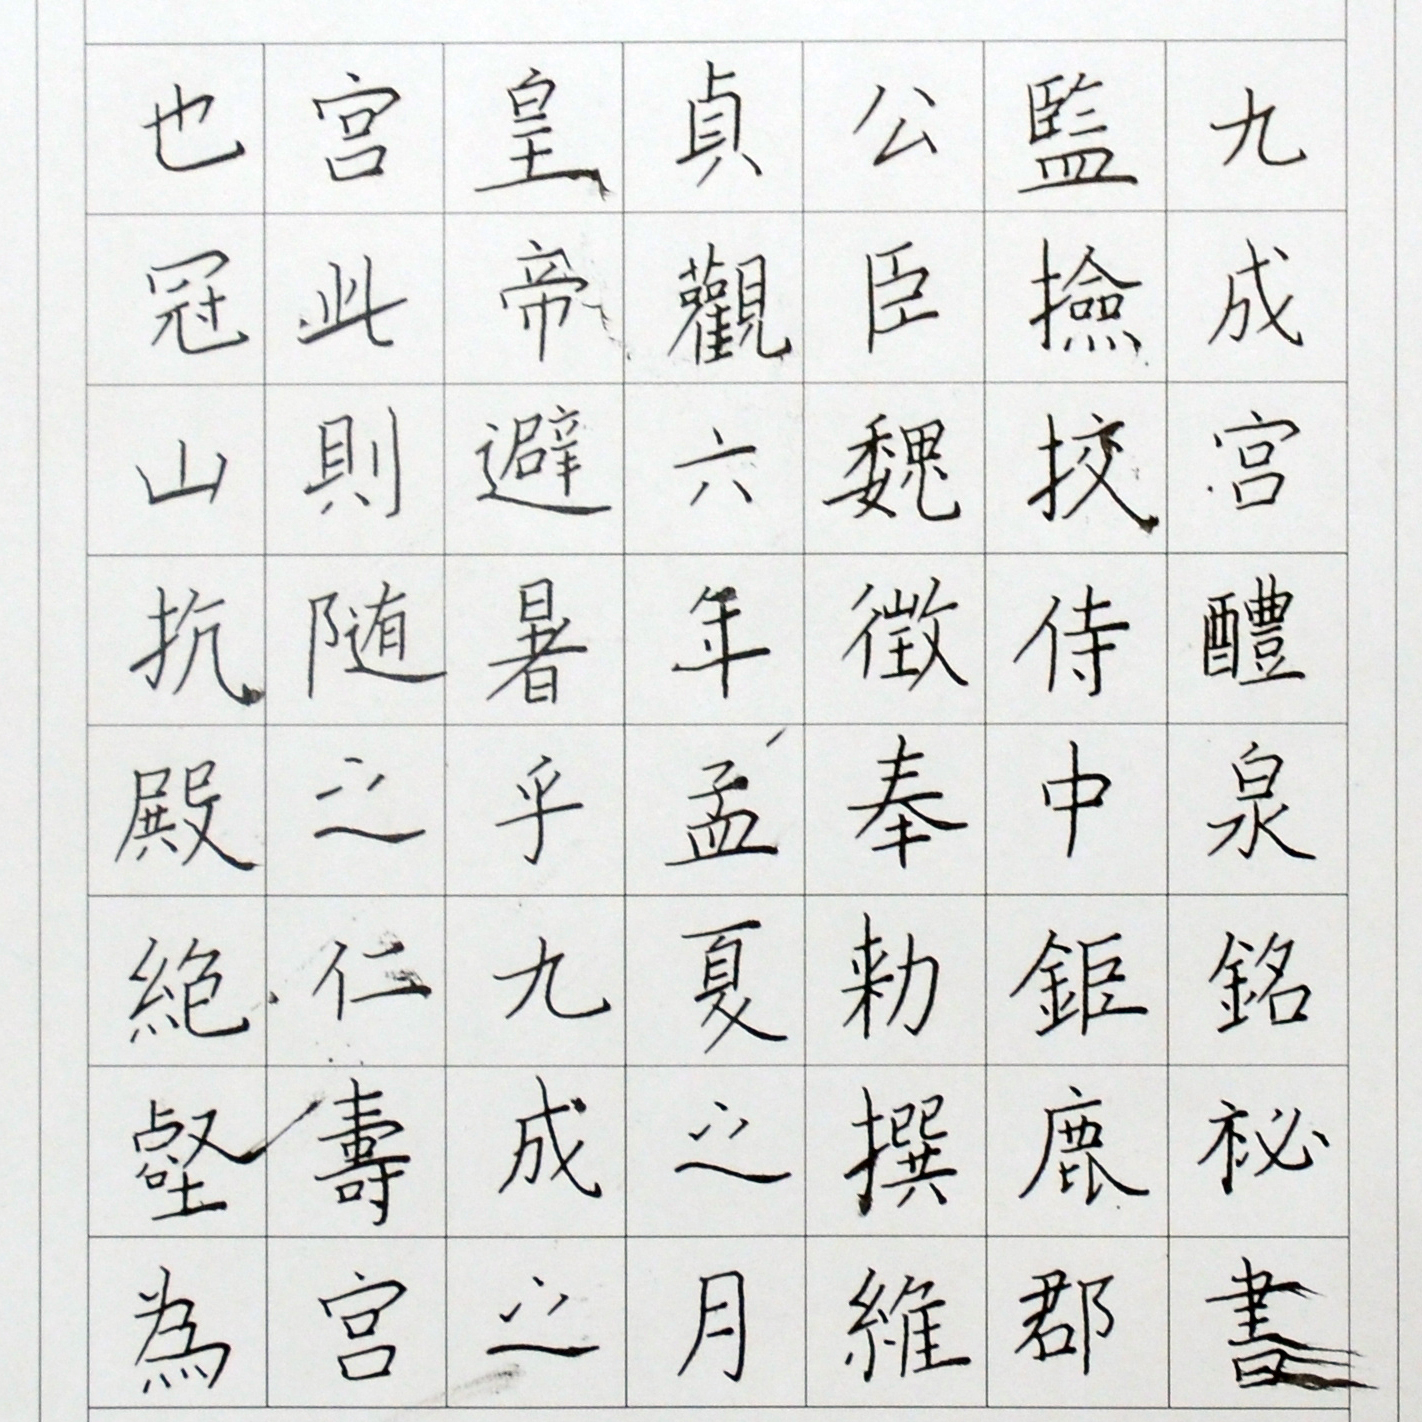 九成宮醴泉銘秘書
監撿挍侍中鉅鹿郡
公臣魏徵奉勑撰維
貞觀六年孟夏之月
皇帝避暑乎九成之
宮此則随之仁壽宮
也冠山抗殿絶壑為